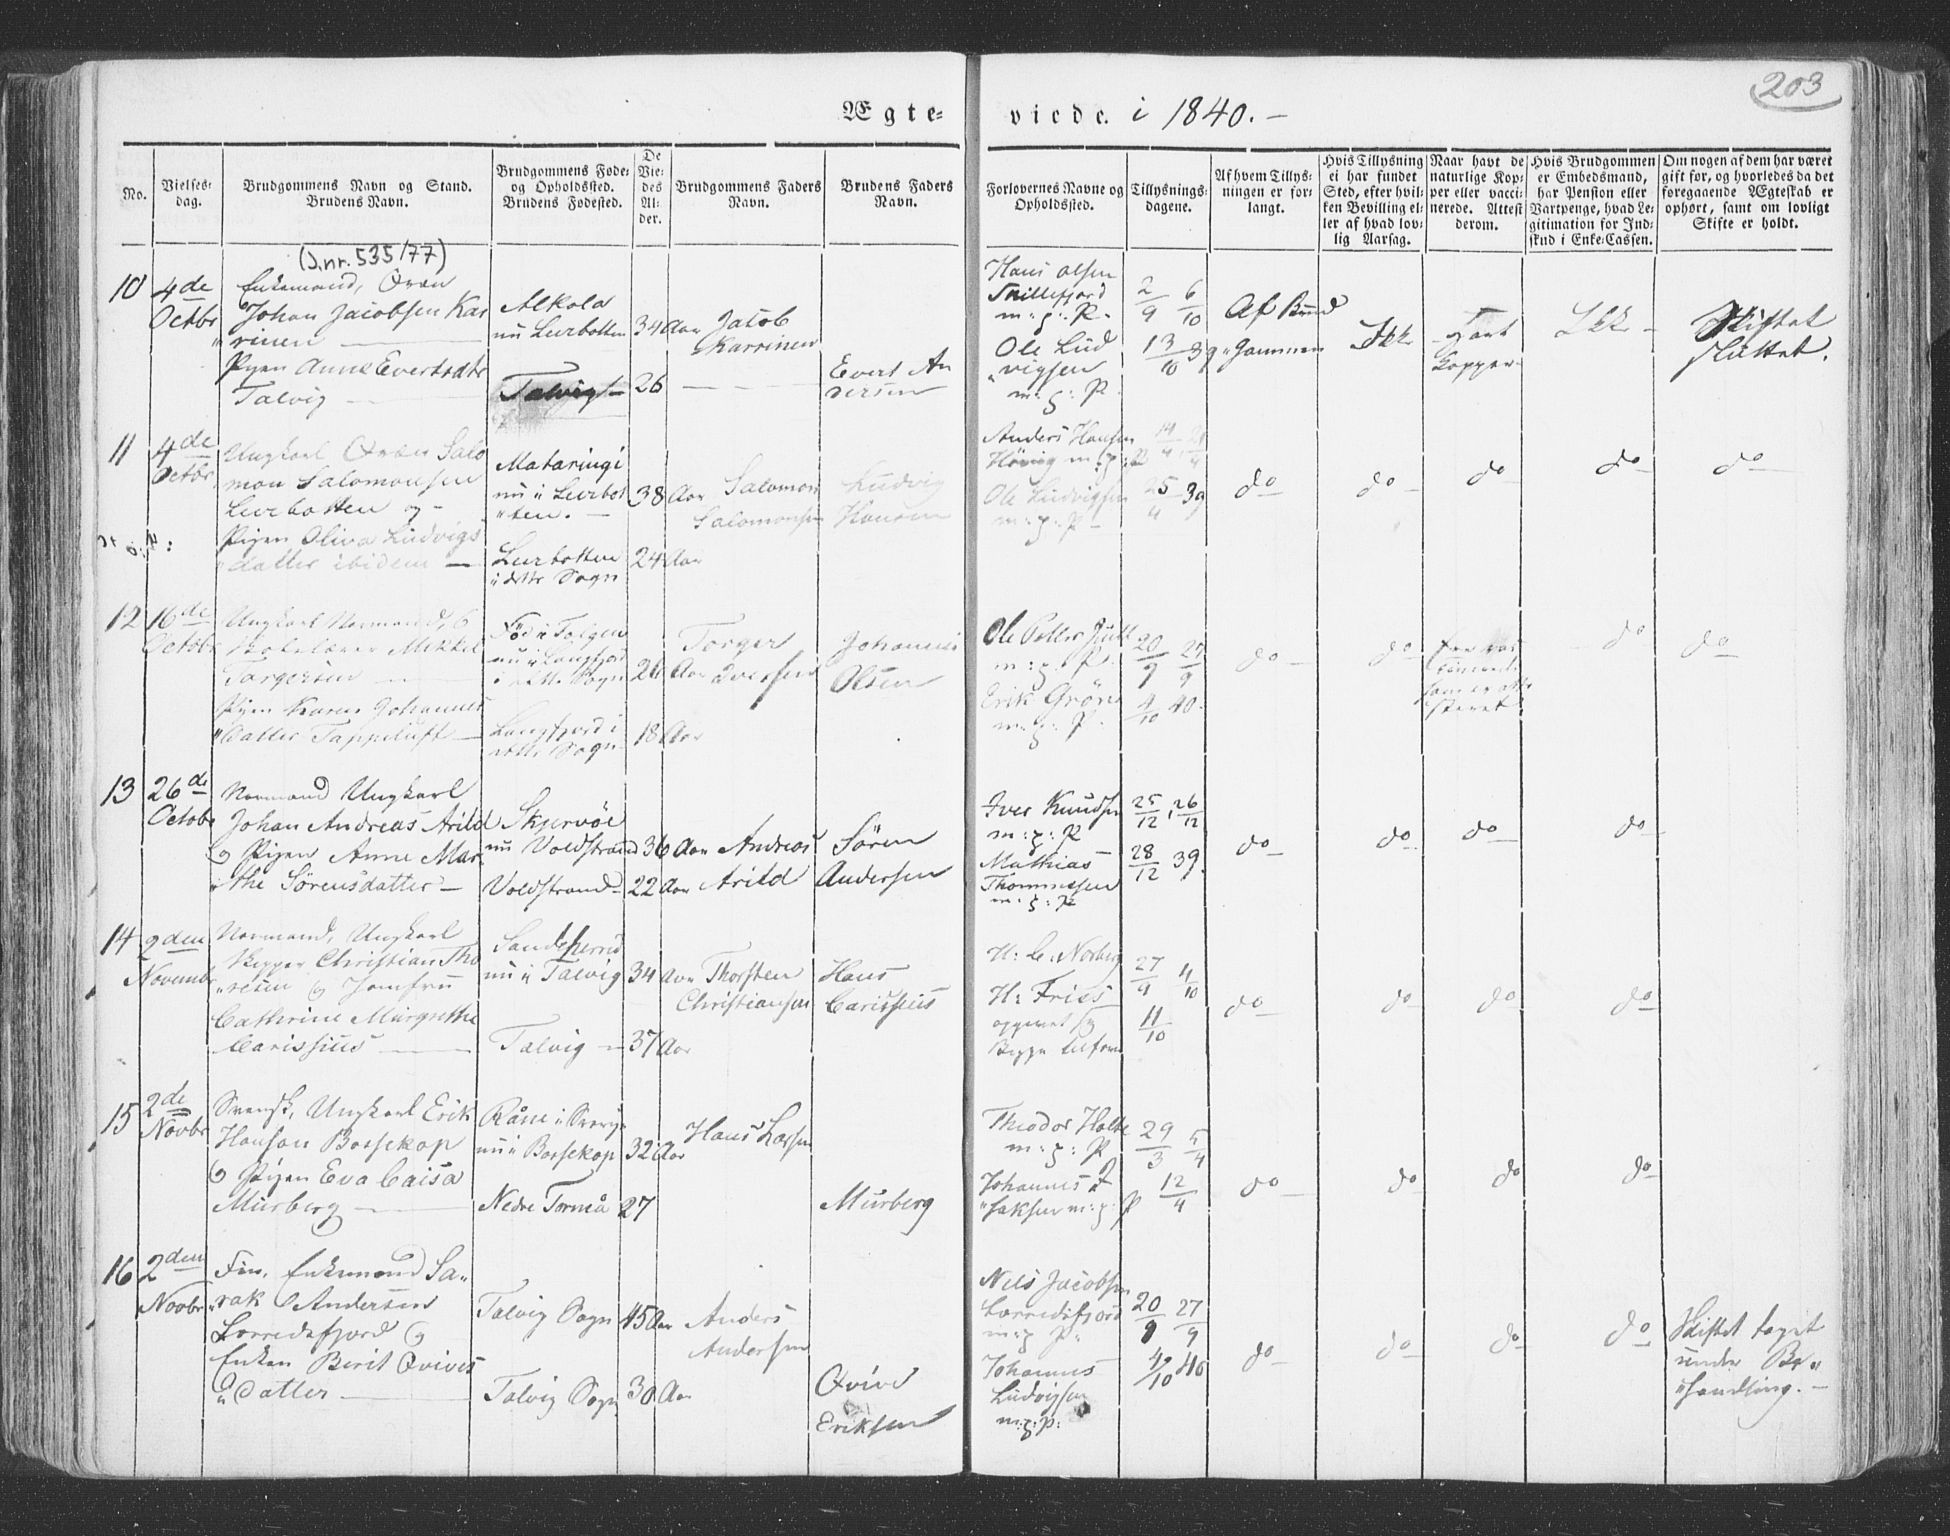 203
Ægte- viede. i 1840. –
No.
Vielses-
dag.
Brudgommens Navn og Stand.
Brudens Navn.
Brudgommens Føde-
og Opholdssted.
Brudens Fødested.
De
Vie-
des
Al-
der.
Brudgommens Faders
Navn.
Brudens Faders
Navn.
Forlovernes Navne og
Opholdssted.
Tillysnings-
dagene.
Af hvem Tillys-
ningen er for-
langt.
Hvis Tillysning
ei har fundet
Sted, efter hvil-
ken Bevilling el-
ler af hvad lov-
lig Aarsag.
Naar havt de
naturlige Kop-
per eller vacci-
nerede. Attest
derom.
Hvis Brudgommen
er Embedsmand,
har Pension eller
Vartpenge, hvad Le-
gitimation for Ind-
skud i Enke-Cassen.
Om nogen af dem har været
gift før, og hvorledes da det
foregaaende Ægteskab er
ophørt, samt om lovligt
Skifte er holdt.
(J.nr. 535/77)
10
4de
Octbr
Enkemand, Qvæn
Johan Jacobsen Kar
rinen
Pigen Anne Evertsdtr
Talvig
Alkola
nu Leerbotten
Talvig
34 Aar
26
Jacob
Karrinen
Evert An
dersen
Hans Olsen
m: p: P.
Ole Lud
vigsen
m: p: P.
2/9 6/10
13/10 39
Af Brud
Gommen
Ikke
Havt
Kopper
Ikke
Skiftet
sluttet.
11
4de
Octbr.
Ungkarl Qvæn Salo
mon Salomonsen
Leerbotten og
Pigen Oliva Ludvigs
datter ibidem
Mataringi
nu i Leerbot
ten.
Leerbotten
i dette Sogn
38 Aar
24 Aar
Salomon
Salomonsen
Ludvig
Hansen
Anders Hansen
m: p: P
Ole Ludvigsen
m: p: P
25/4 39
do
do
do
do
do
12
16de
Octobr
Ungkarl Normand, 
Skolelærer Mikkel
Torgersen
Pigen Karen Johannes
datter Tappeluft
Fød i Tolgen
nu i Langfjord
i dette Sogn
Langfjord i
dette Sogn
18 Aar
Torger
Iversen
Johannes
Olsen
Ole Petter Juul
m: p: P.
Erik Grön
m: p: P.
20/9 27/9
4/10 40.
do
do
do
do
13
26de
Octobr
Normand Ungkarl
Johan Andreas Arild
og Pigen Anne Mar
the Sörensdatter
Skjervöe
nu Voldstrand
Voldstrand
36 Aar
22 Aar
Andreas
Arild
Sören
Andersen
Iver Knudsen
m: p: P
Mathias
Thomassen
m: p: P
25/12, 26/12
28/12 39.
do
do
do
do
14
2den
Novembr
Normand, Ungkarl
Skipper Christian Tho
resen og Jomfru
Cathrine Margrethe
Carissius
Sandsherred
nu i Talvig
Talvig
34 Aar
37 Aar
Thorsten
Christiansen
Hans
Carissius
H: C: Norberg
H: Friis
27/9 4/10
11/10
do
do
do
do
15
2de
Novbr
Svensk, Ungkarl Erik
Hansen Bossekop
og Pigen Eva Caisa
Murberg
Råne i Sverig
nu i Bossekop
Nedre Torneå
32 Aar
27
Hans Larsen
Murberg
Theodor Holte
m: p: P
Johannes I
saksen m: p: P
29/3 5/4
12/4
do
do
do
do
16
2den
Novbr
Fin, Enkemand Sa
rak Andersen
Lerredsfjord og
Enken Berit Qvives
datter
Talvig Sogn
Talvig Sogn
45 Aar
30 Aar
Anders
Andersen
Qvive
Eriksen
Nils Jacobsen
Lerredsfjord
m: p: P.
Johannes
Ludvigsen
m: p: P:
20/9 27/9
4/10 40
do
do
do
do
Skiftet taget
under Be
handling.